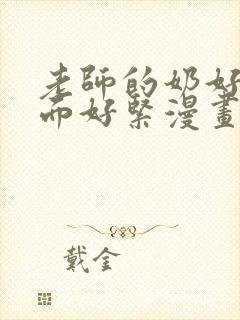 老師的奶好
而好緊漫畫
戴金